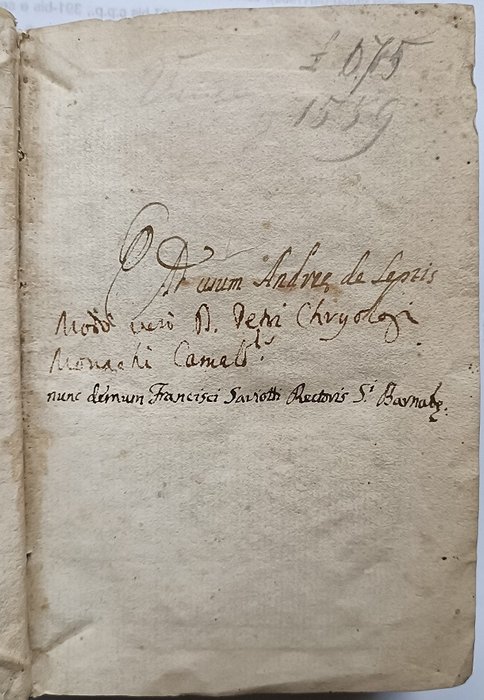 £ 0,75
1559
Ad usum Andreę de Leptis
Modò verò D. Petri Chrysologi
Monachi Camald.lis
nunc demum Francisci Saviotti Rectoris S.i Barnabę.